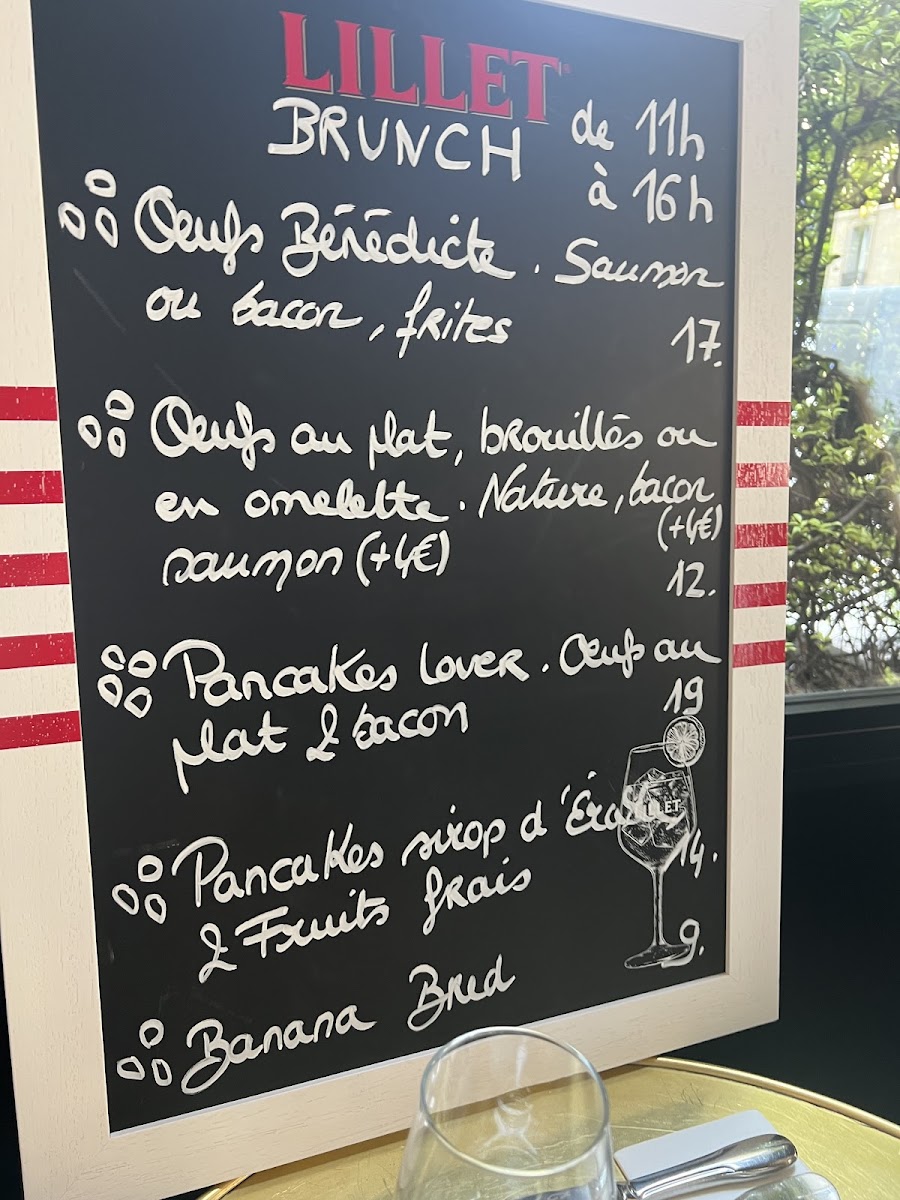 LILLET
BRUNCH de 11h
à 16h
Oeufs Bénédicte. Saumon
ou bacon, frites 17.
Oeufs au plat, brouillés ou
en omelette. Nature, bacon
(+4€)
saumon (+4€)
12.
Pancakes lover. Oeufs au
plat & bacon 19
Pancakes sirop d'Érable
& Fruits frais 14.
LILLET
Banana Bred 9.